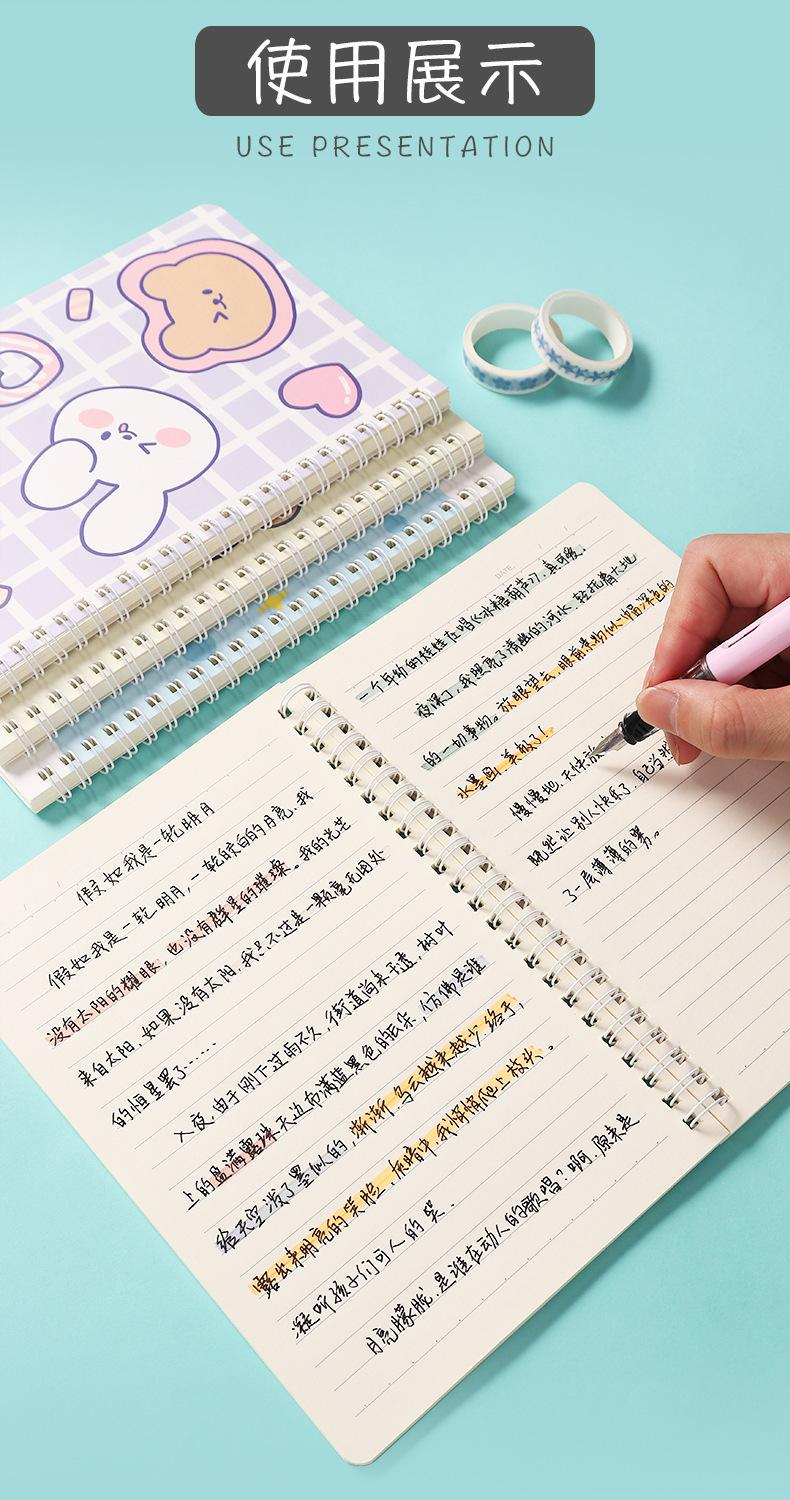 使用展示
USE PRESENTATION
假如我是一轮明月
假如我是一轮明月,一轮皎白的月亮,我
没有太阳的耀眼,也没有群星的璀璨。我的光芒
来自太阳,如果没有太阳,我只不过是一颗毫无用处
的恒星罢了……
入夜,由于刚下过雨不久,街道尚未干透,树叶
上的盈满露珠天边布满蓝黑色的云朵,仿佛是谁
给天空泼了墨似的,渐渐,乌云越来越少,终于,
在暗中,我悄悄爬上枝头。
露出来明亮的笑脸,
凝听孩子们可人的笑。
月亮朦胧,是谁在动人的歌唱?啊,原来是
DATE.
一个年幼的娃娃在唱《冰糖葫芦》,真可爱。
夜深了,我照亮了清幽的河水,轻抚着大地
的一切事物。放眼望去,眼前景物似一幅深色的
水墨图,美极了!
慢慢地,天快放
既然让别人快乐了,自己当我
了一层薄薄的雾。